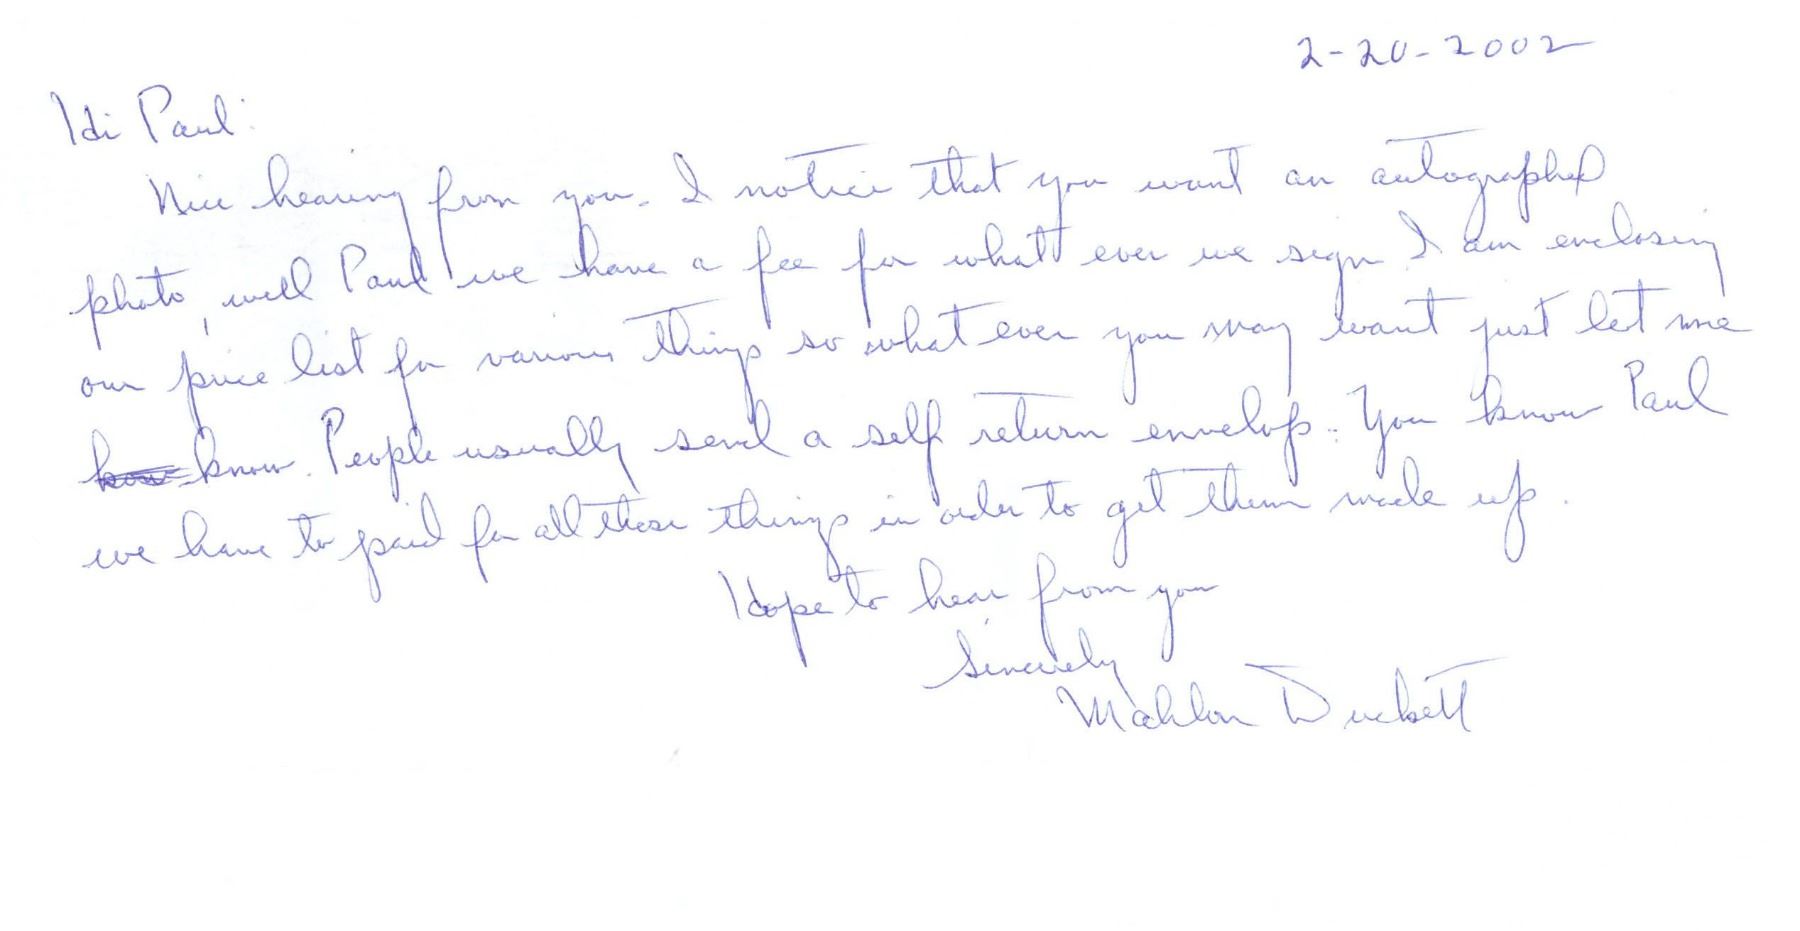 2-20-2002
Hi Paul:
Nice hearing from you. I notice that you want an autographed
photo, well Paul we have a fee for what ever we sign. I am enclosing
our price list for various things so what ever you may want just let me
know. People usually send a self return envelop. You know Paul
we have to paid for all these things in order to get them made up.
Hope to hear from you
Sincerely
Mahlon Duckett